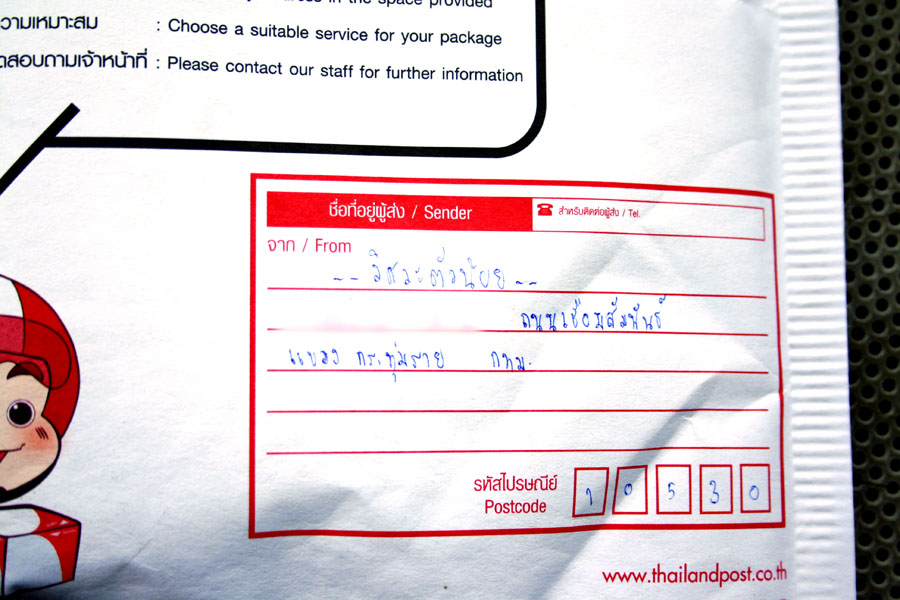 in the space provided
วามเหมาะสม : Choose a suitable service for your package
สอบถามเจ้าหน้าที่ : Please contact our staff for further information
ชื่อที่อยู่ผู้ส่ง / Sender
สำหรับติดต่อผู้ส่ง / Tel.
จาก / From
-- วิศวะตัวน้อย --
ถนนเชื่อมสัมพันธ์
แขวง กระทุ่มราย กทม.
รหัสไปรษณีย์
Postcode
10530
www.thailandpost.co.th